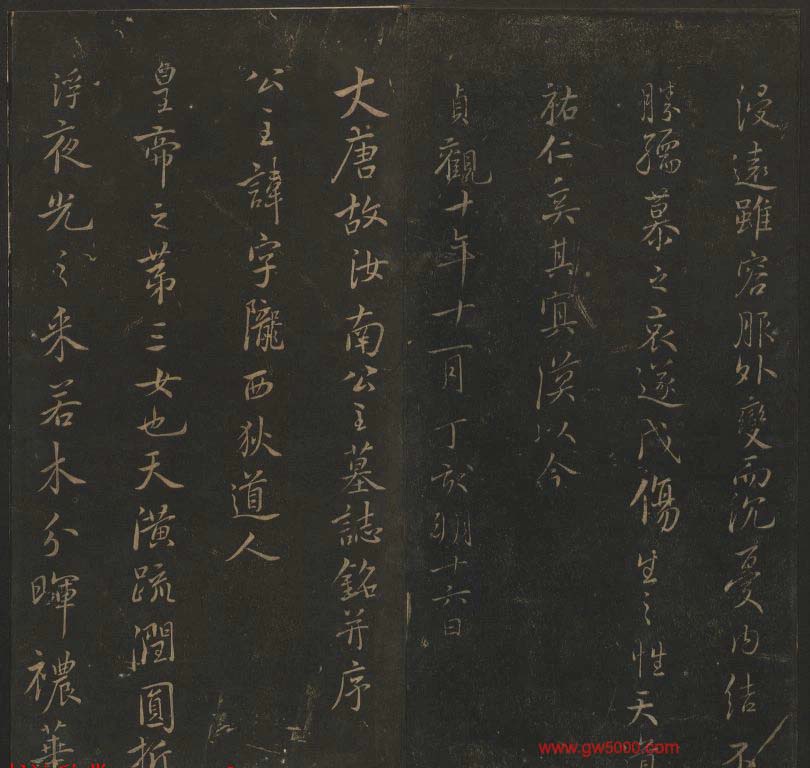 浸遠雖容服外變而沉憂内結不
勝孺慕之哀遂戊傷生之性天道
祐仁奚其冥漠以今
貞觀十年十一月丁亥朔十六日
大唐故汝南公主墓誌銘并序
公主諱字隴西狄道人
皇帝之第三女也天潢疏潤圓折
浮夜光之采若木分暉穠華
www.gw5000.com